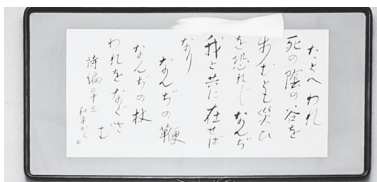 たとへわれ
死の陰の谷を
歩むとも災ひ
を恐れじなんぢ
我と共に在せば
なり
なんぢの鞭
なんぢの杖
われをなぐさ
む
詩編二十三